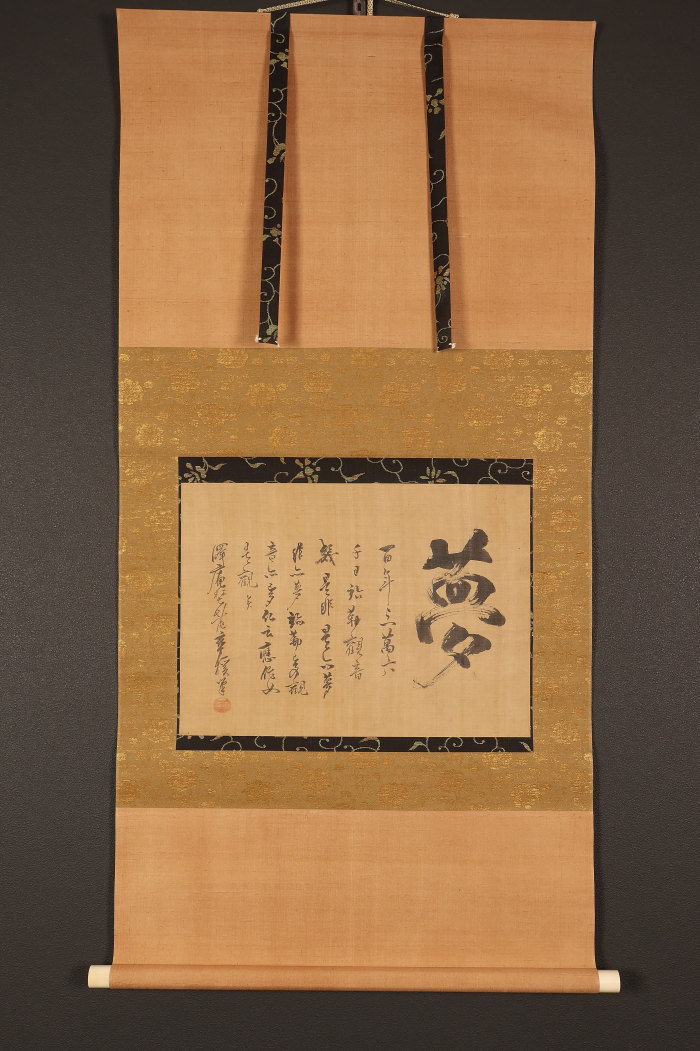 夢
百年三萬六
千日弥勒觀音
幾是非是亦夢
非亦夢弥勒夢觀
音亦夢佛云應作如
是觀矣
澤庵
筆